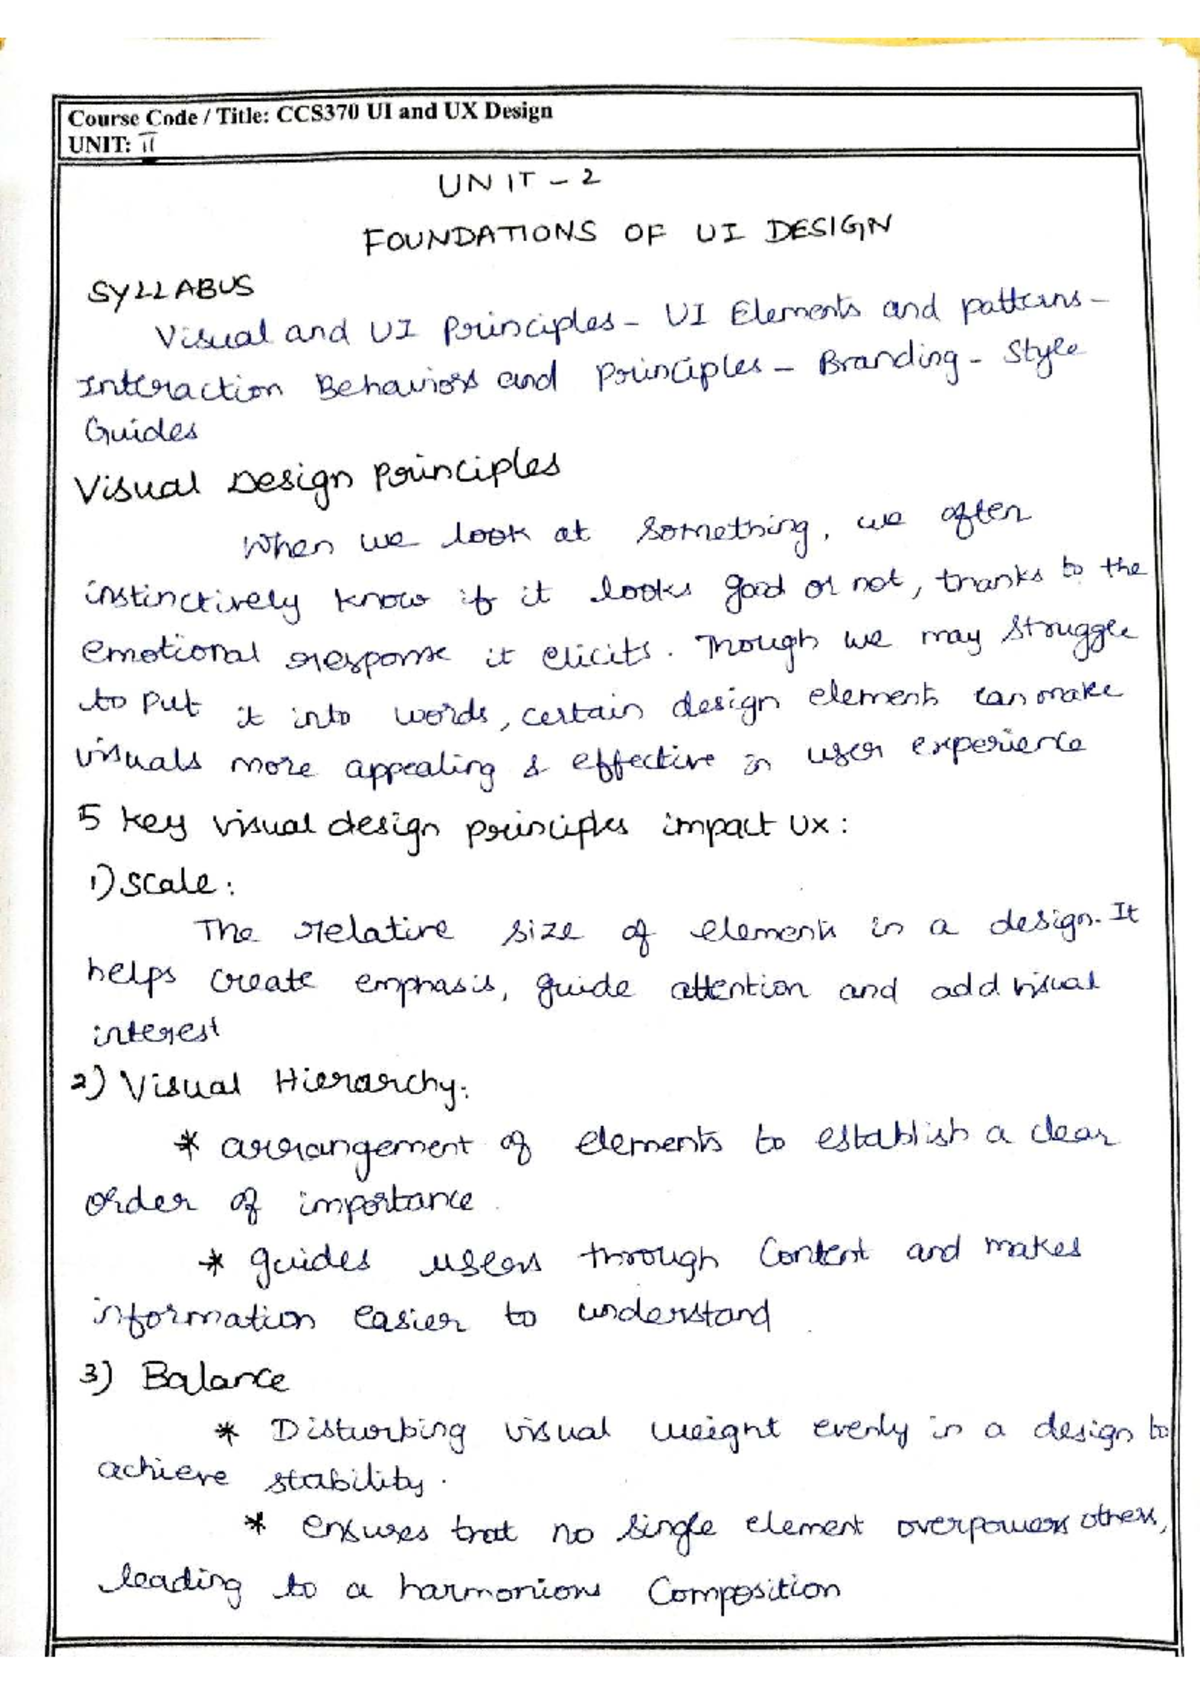 Course Code / Title: CCS370 UI and UX Design
UNIT: II
UNIT - 2
FOUNDATIONS OF UI DESIGN
SYLLABUS
Visual and UI Principles - UI Elements and patterns -
Interaction Behaviors and Principles - Branding - Style
Guides
Visual Design Principles
When we look at something, we often
instinctively know if it looks good or not, thanks to the
emotional response it elicits. Though we may struggle
to put it into words, certain design elements can make
visuals more appealing & effective in user experience
5 key visual design principles impact UX :
1) Scale :
The relative size of elements in a design. It
helps create emphasis, guide attention and add visual
interest
2) Visual Hierarchy :
* arrangement of elements to establish a clear
order of importance.
* guides users through Content and makes
information easier to understand.
3) Balance
* Disturbing visual weight evenly in a design to
achieve stability.
* ensures that no single element overpowers others,
leading to a harmonions Composition